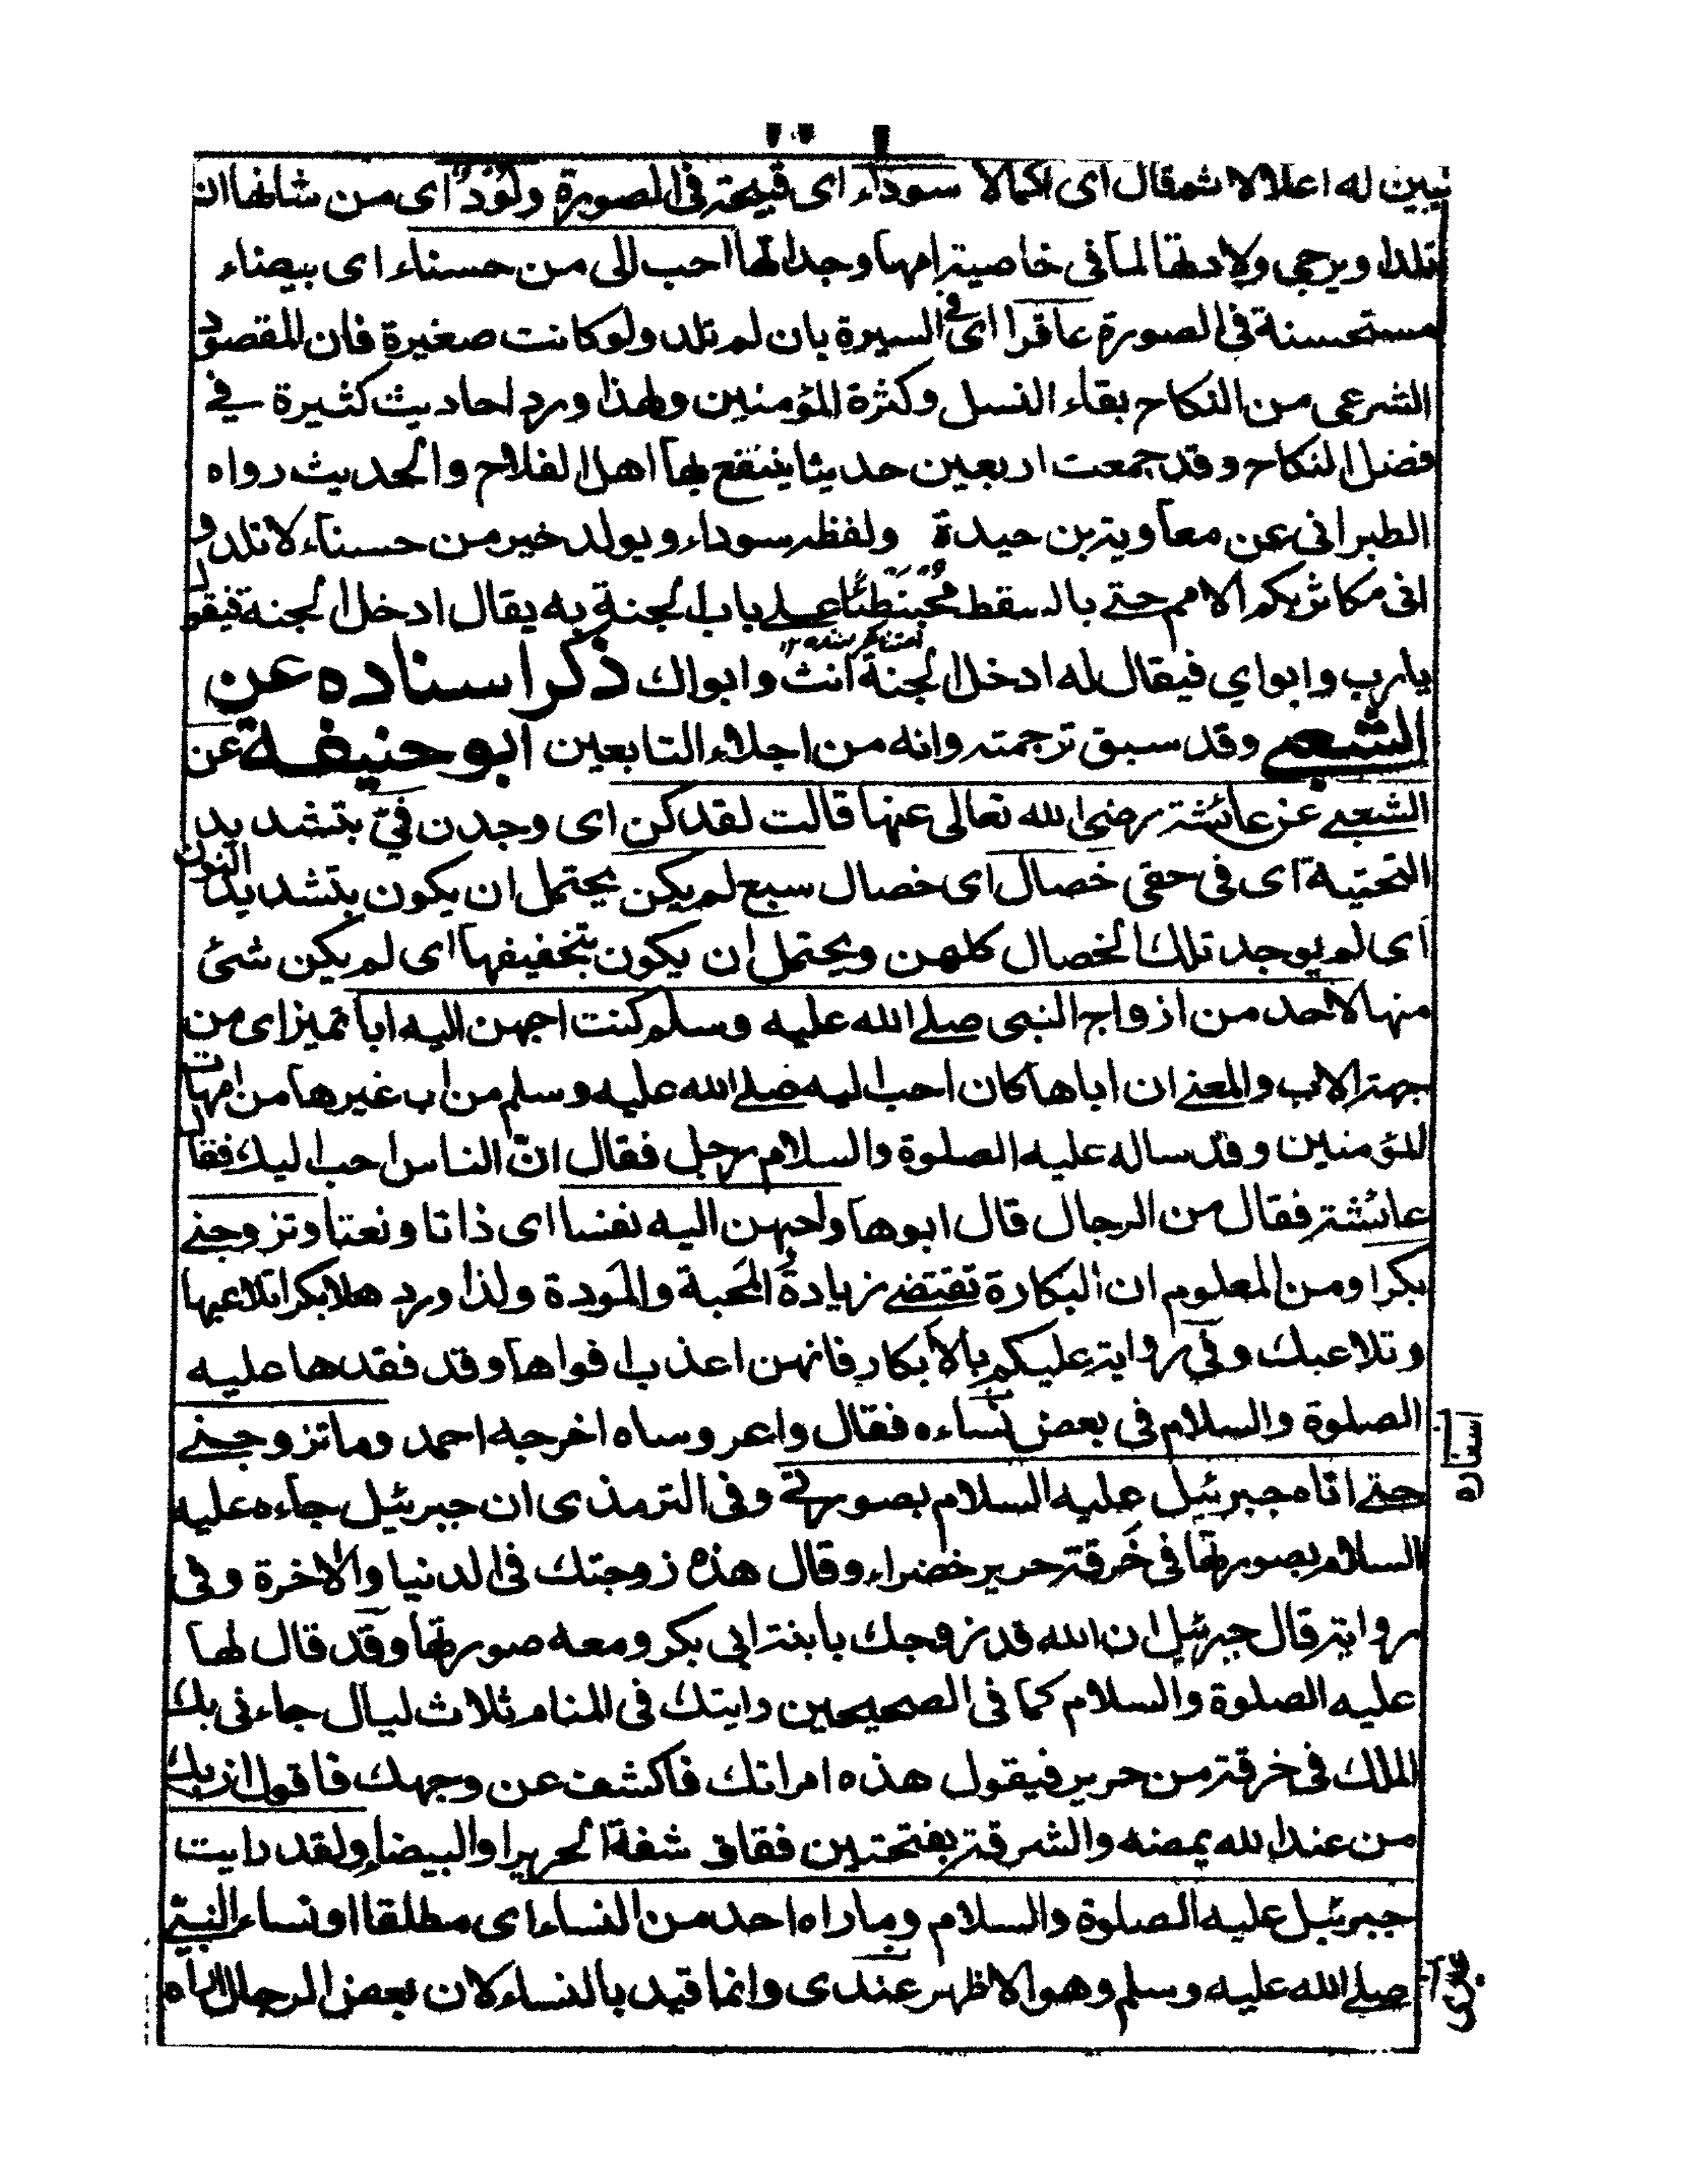 نبين له اعلالا ثم قال اى اكمالا سوداء اى قبيحة فى الصورة ولود اى من شانها ان
تلدا ويرجى ولادتها لما فى خاصية امها وجداتها احب الى من حسناء اى بيضاء
مستحسنة فى الصورة عاقرا اى فى السيرة بان لم تلد ولو كانت صغيرة فان المقصود
الشرعى من النكاح بقاء النسل وكثرة المؤمنين ولهذا ورد احاديث كثيرة فے
فضل النكاح وقد جمعت اربعين حديثا ينتفع بها اهل الفلاح والحديث رواه
الطبرانى عن معاوية بن حيدة ولفظه سوداء ويولد خير من حسناء لا تلد و
انى مكاثر بكم الامم حتے بالسقط مُحْبَنْطِئًا علے باب الجنة به يقال ادخل الجنة فيقول
يارب وابواي فيقال له ادخل الجنة انت وابواك ذكر اسناده عن
الشعبے وقد سبق ترجمته وانه من اجلاء التابعين ابو حنيفة عن
الشعبے عن عائشة رضى الله تعالى عنها قالت لقد كن اى وجدن فيّ بتشديد
التحتية اى فى حقى خصال اى خصال سبع لم يكن يحتمل ان يكون بتشديد النون
اى لم يوجد تلك الخصال كلهن ويحتمل ان يكون بتخفيفها اى لم يكن شئ
منها لاحد من ازواج النبى صلے الله عليه وسلم كنت احبهن اليه ابا تميز اى من
جهة الاب والمعنے ان اباها كان احب اليه صلے الله عليه وسلم من اب غيرها من امهات
المؤمنين وقد ساله عليه الصلوة والسلام رجل فقال انّ الناس احب اليك فقال
عائشة فقال من الرجال قال ابوها واحبهن اليه نفسا اى ذاتا ونعتا وتزوجنے
بكرا ومن المعلوم ان البكارة تقتضے زيادة المحبة والمودة ولذا ورد هلا بكرا تلاعبها
وتلاعبك وفى رواية عليكم بالابكار فانهن اعذب افواها وقد فقدها عليه
الصلوة والسلام فى بعض نساءه فقال واعروساه اخرجه احمد وما تزوجنے
حتے اتاه جبرئيل عليه السلام بصورتے وفى الترمذى ان جبرئيل جاءه عليه
السلام بصورتها فى خرقة حرير خضراء وقال هذه زوجتك فى الدنيا والاخرة وفى
رواية قال جبرئيل ان الله قد زوجك بابنة ابى بكر ومعه صورتها وقد قال لها
عليه الصلوة والسلام كما فى الصحيحين رايتك فى المنام ثلاث ليال جاءنى بك
الملك فى خرقة من حرير فيقول هذه امراتك فاكشف عن وجهك فاقول ان يك
من عند الله يمضه والشرقة بفتحتين فقاف شقة الحرير او البيضاء ولقد رايت
جبرئيل عليه الصلوة والسلام وما راه احد من النساء اى مطلقا او نساء النبے
صلے الله عليه وسلم وهو الاظهر عندى وانما قيد بالنساء لان بعض الرجال راه